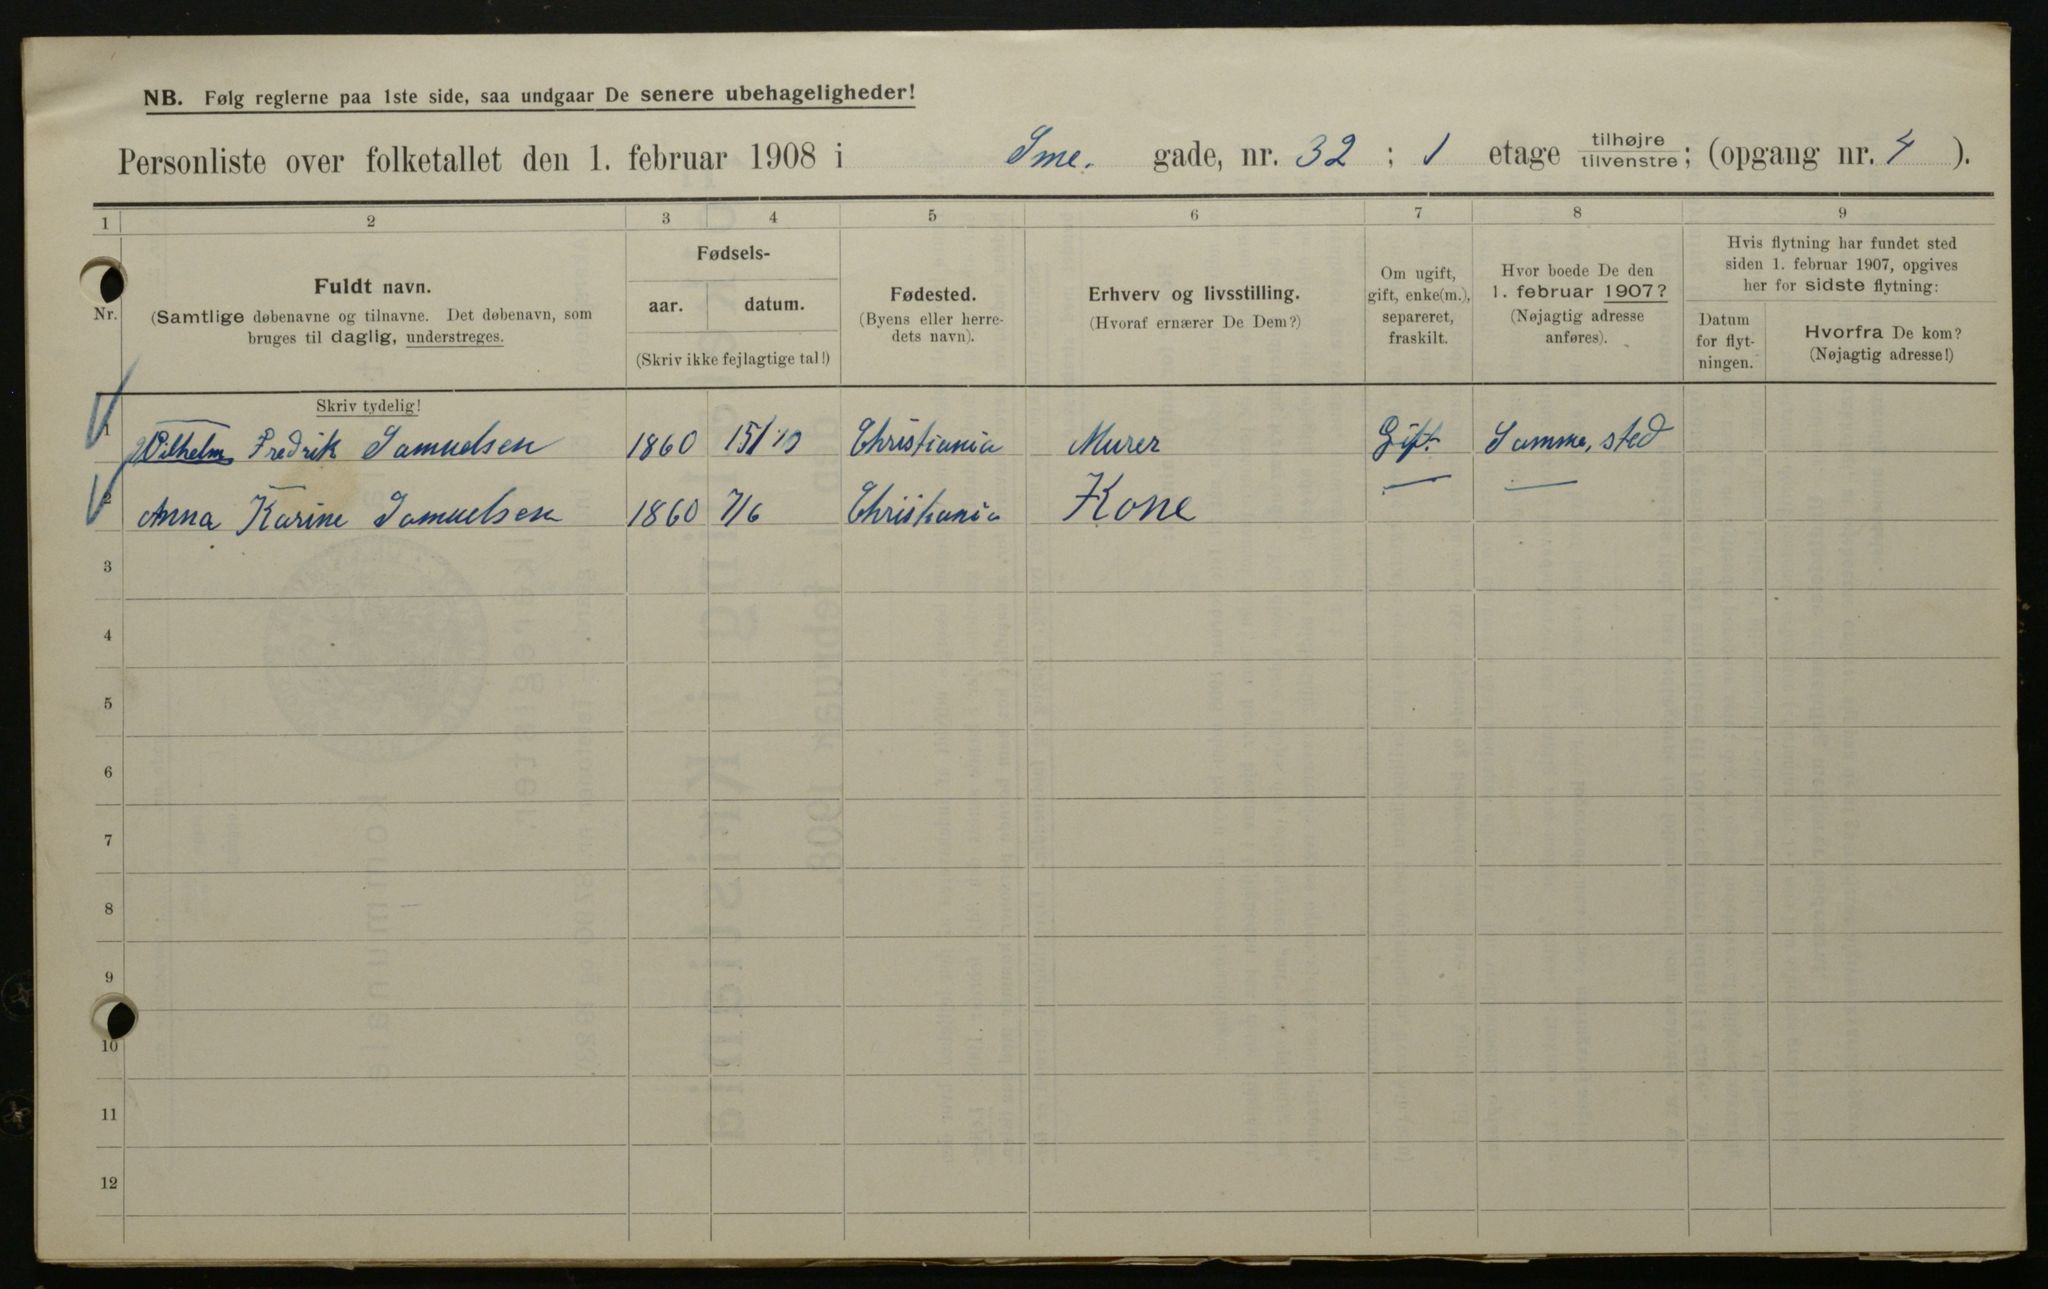 NB. Følg reglerne paa 1ste side, saa undgaar De senere ubehageligheder!
Personliste over folketallet den 1. februar 1908 i Sme. gade, nr. 32 ; 1 etage tilhøjre tilvenstre; (opgang nr. 4 ).
1 2 3 4 5 6 7 8 9
Nr.
Fuldt navn.
(Samtlige døbenavne og tilnavne. Det døbenavn, som
bruges til daglig, understreges.
Fødsels-
aar. datum.
(Skriv ikke fejlagtige tal!)
Fødested.
(Byens eller herre-
dets navn).
Erhverv og livsstilling.
(Hvoraf ernærer De Dem?)
Om ugift,
gift, enke(m.),
separeret,
fraskilt.
Hvor boede De den
1. februar 1907?
(Nøjagtig adresse
anføres).
Hvis flytning har fundet sted
siden 1. februar 1907, opgives
her for sidste flytning:
Datum
for flyt-
ningen.
Hvorfra De kom?
(Nøjagtig adresse!)
Skriv tydelig!
1 Wilhelm Fredrik Samuelsen 1860 15/10 Christiania Murer Gift. Samme, sted
2 Anna Karine Samuelsen 1860 7/6 Christiania Kone — —
3
4
5
6
7
8
9
10
11
12